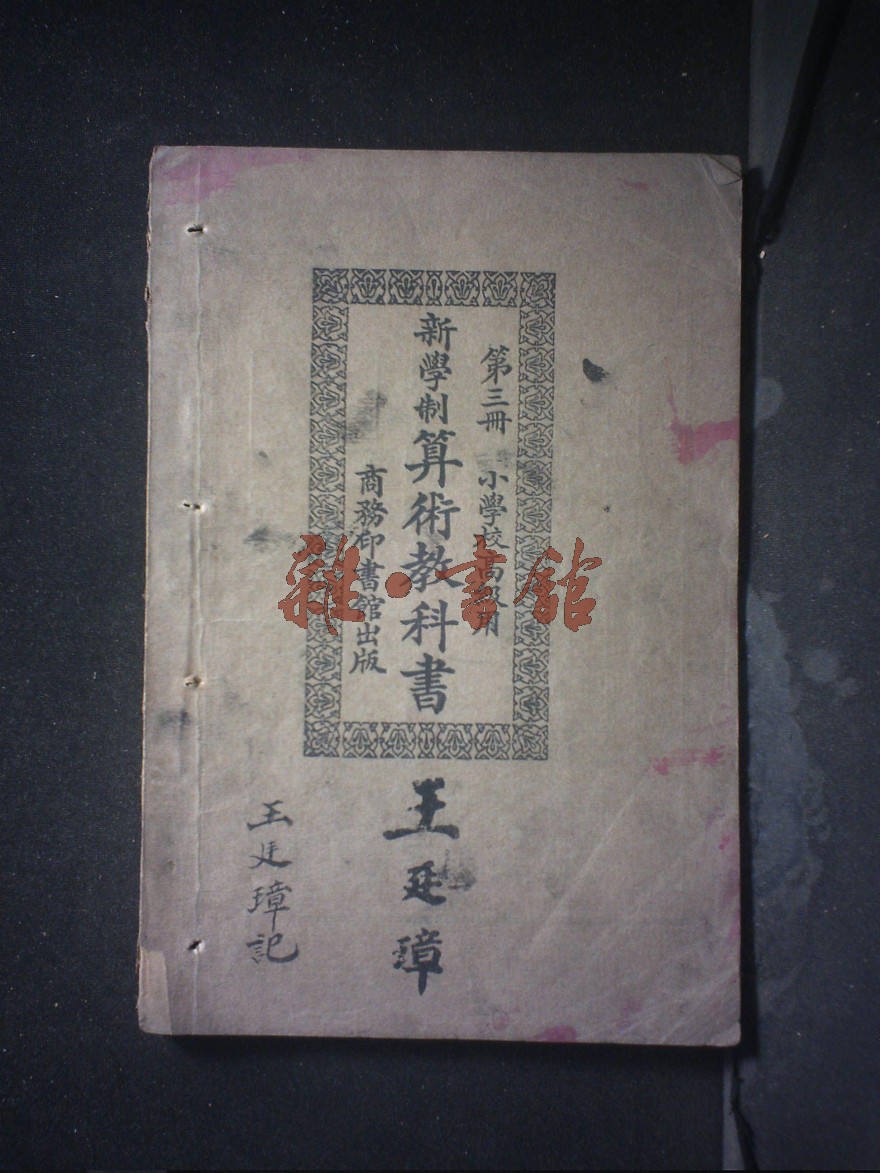 第三冊 小學校高級用
新學制算術教科書
商務印書館出版
王廷璋
王廷璋記
雜·書館